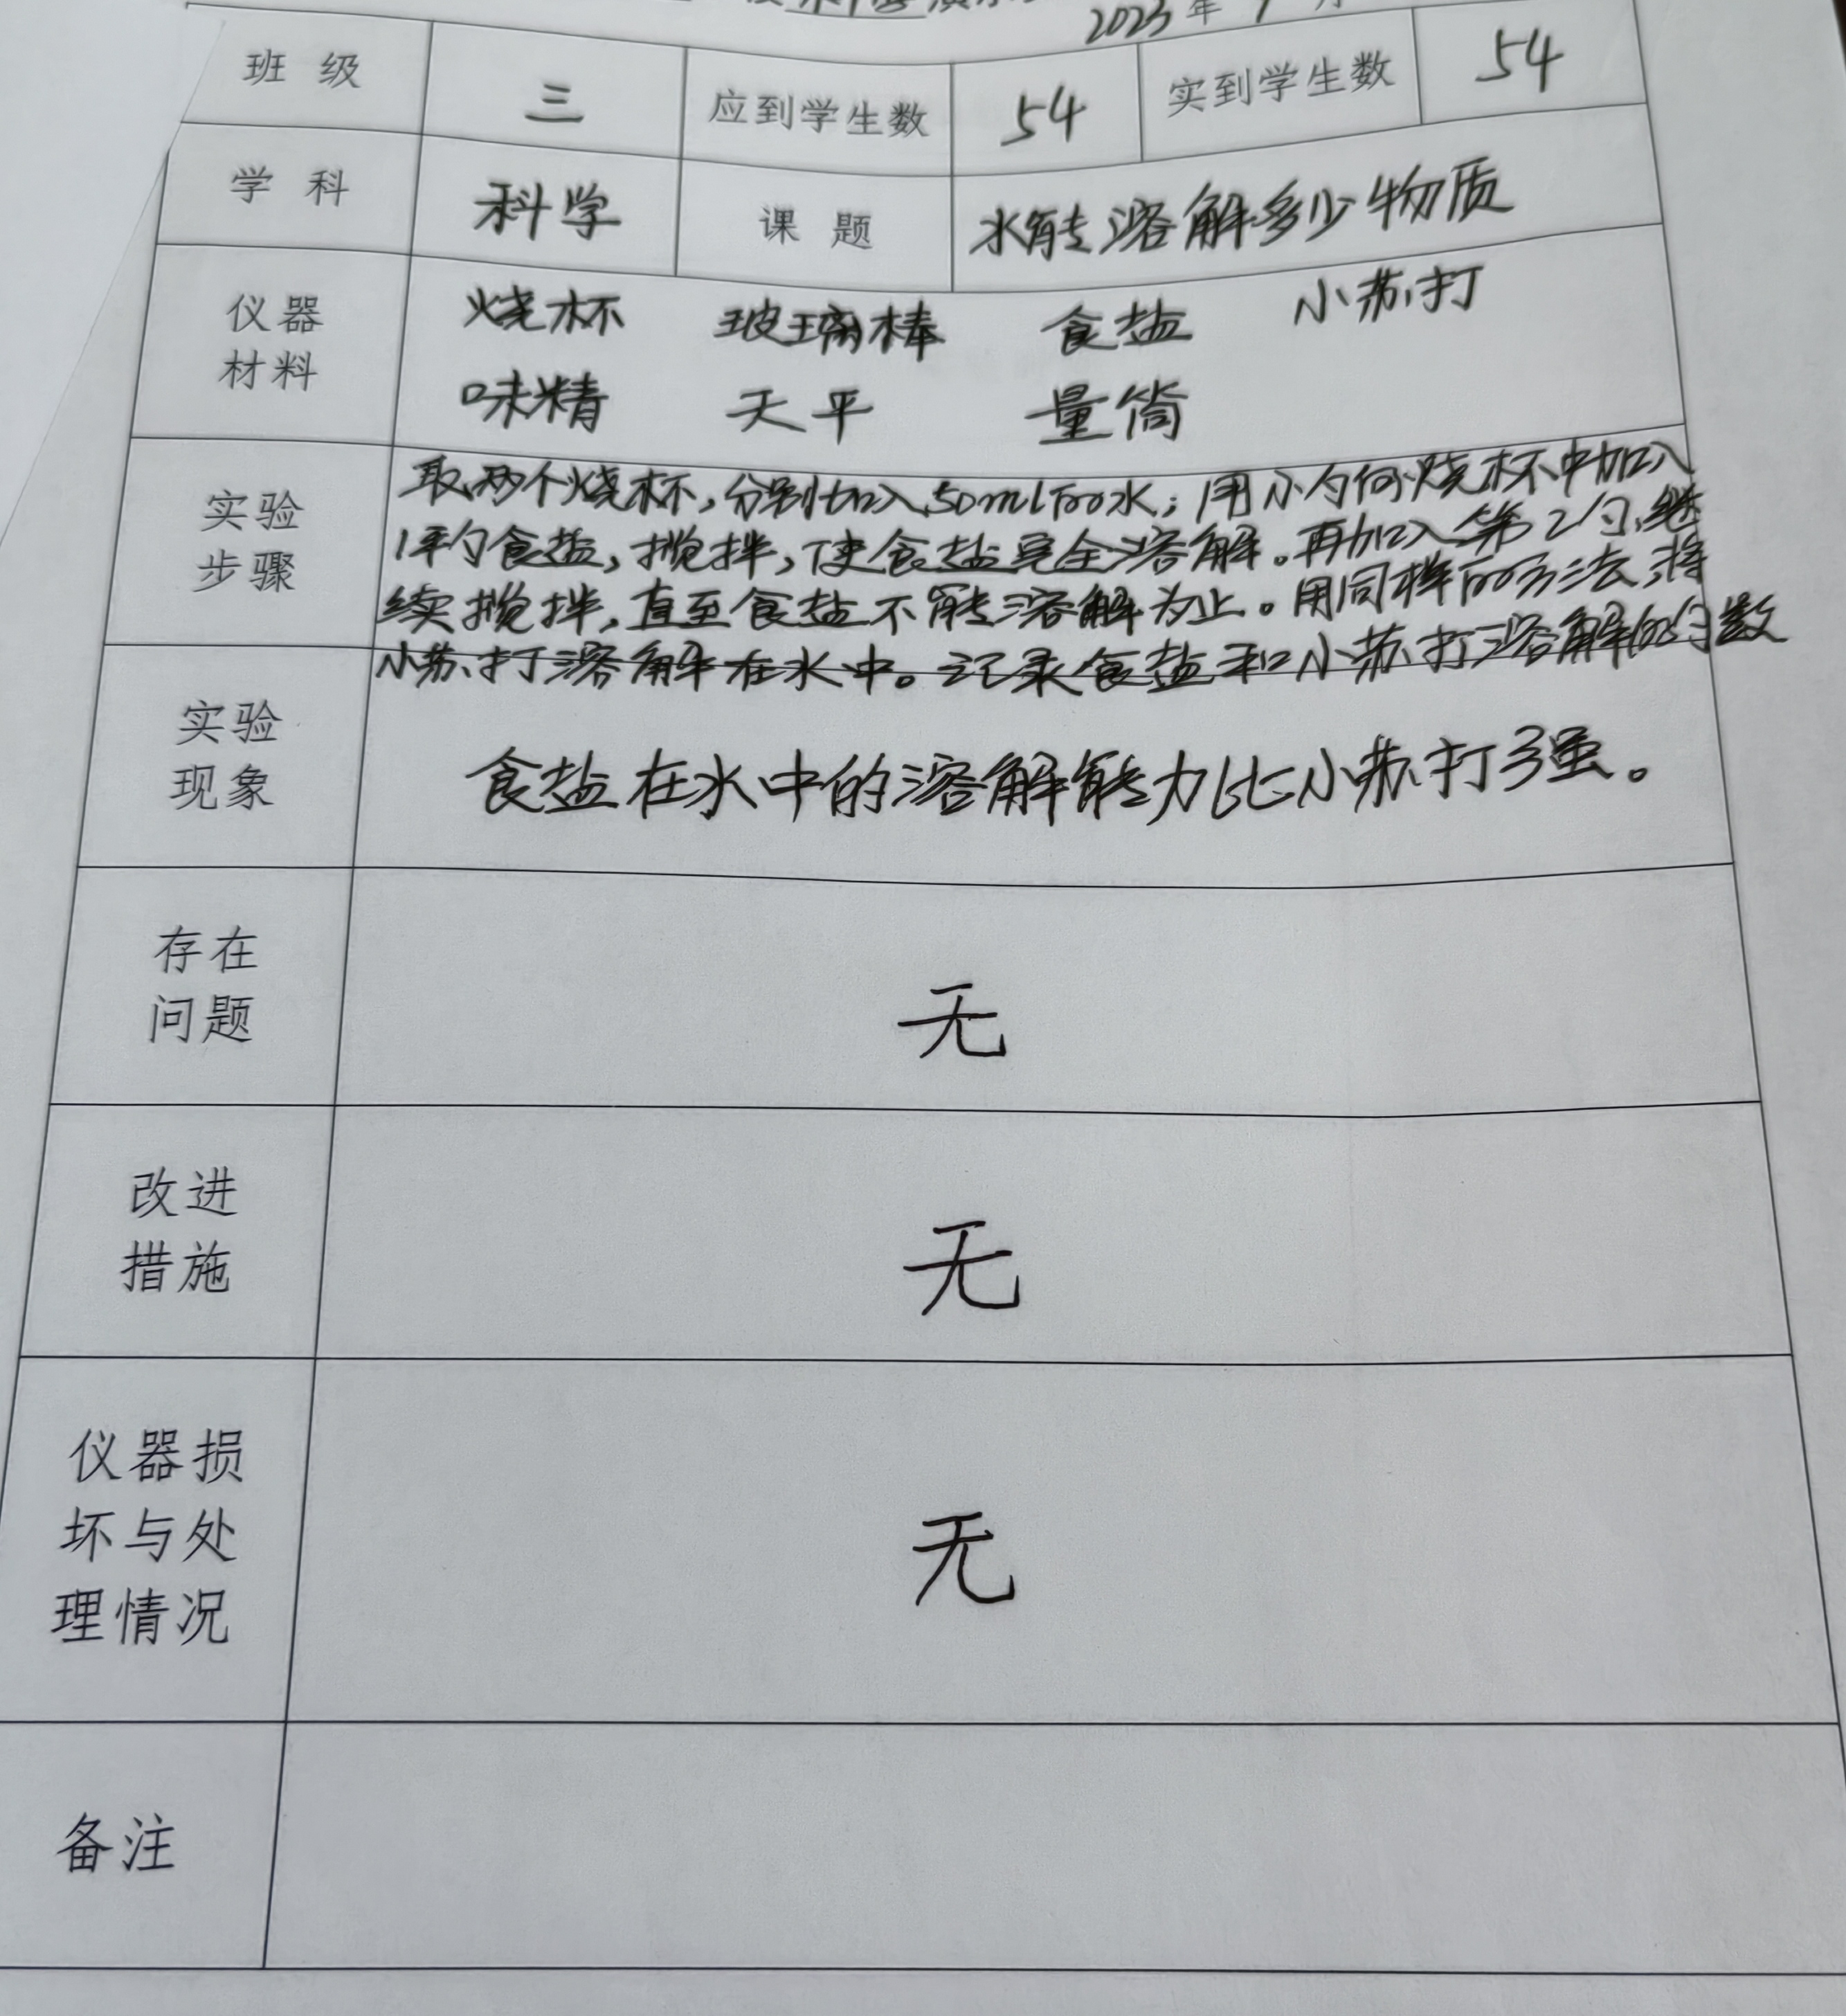 2023年
班级 三 应到学生数 54 实到学生数 54
学科 科学 课题 水能溶解多少物质
仪器 烧杯 玻璃棒 食盐 小苏打
材料 味精 天平 量筒
实验
步骤
取两个烧杯,分别加入50ml的水;用小勺向烧杯中加入
1平勺食盐,搅拌,使食盐完全溶解。再加入第2勺,继
续搅拌,直至食盐不能溶解为止。用同样的方法,将
小苏打溶解在水中。记录食盐和小苏打溶解的勺数
实验
现象
食盐在水中的溶解能力比小苏打强。
存在
问题
无
改进
措施
无
仪器损
坏与处
理情况
无
备注